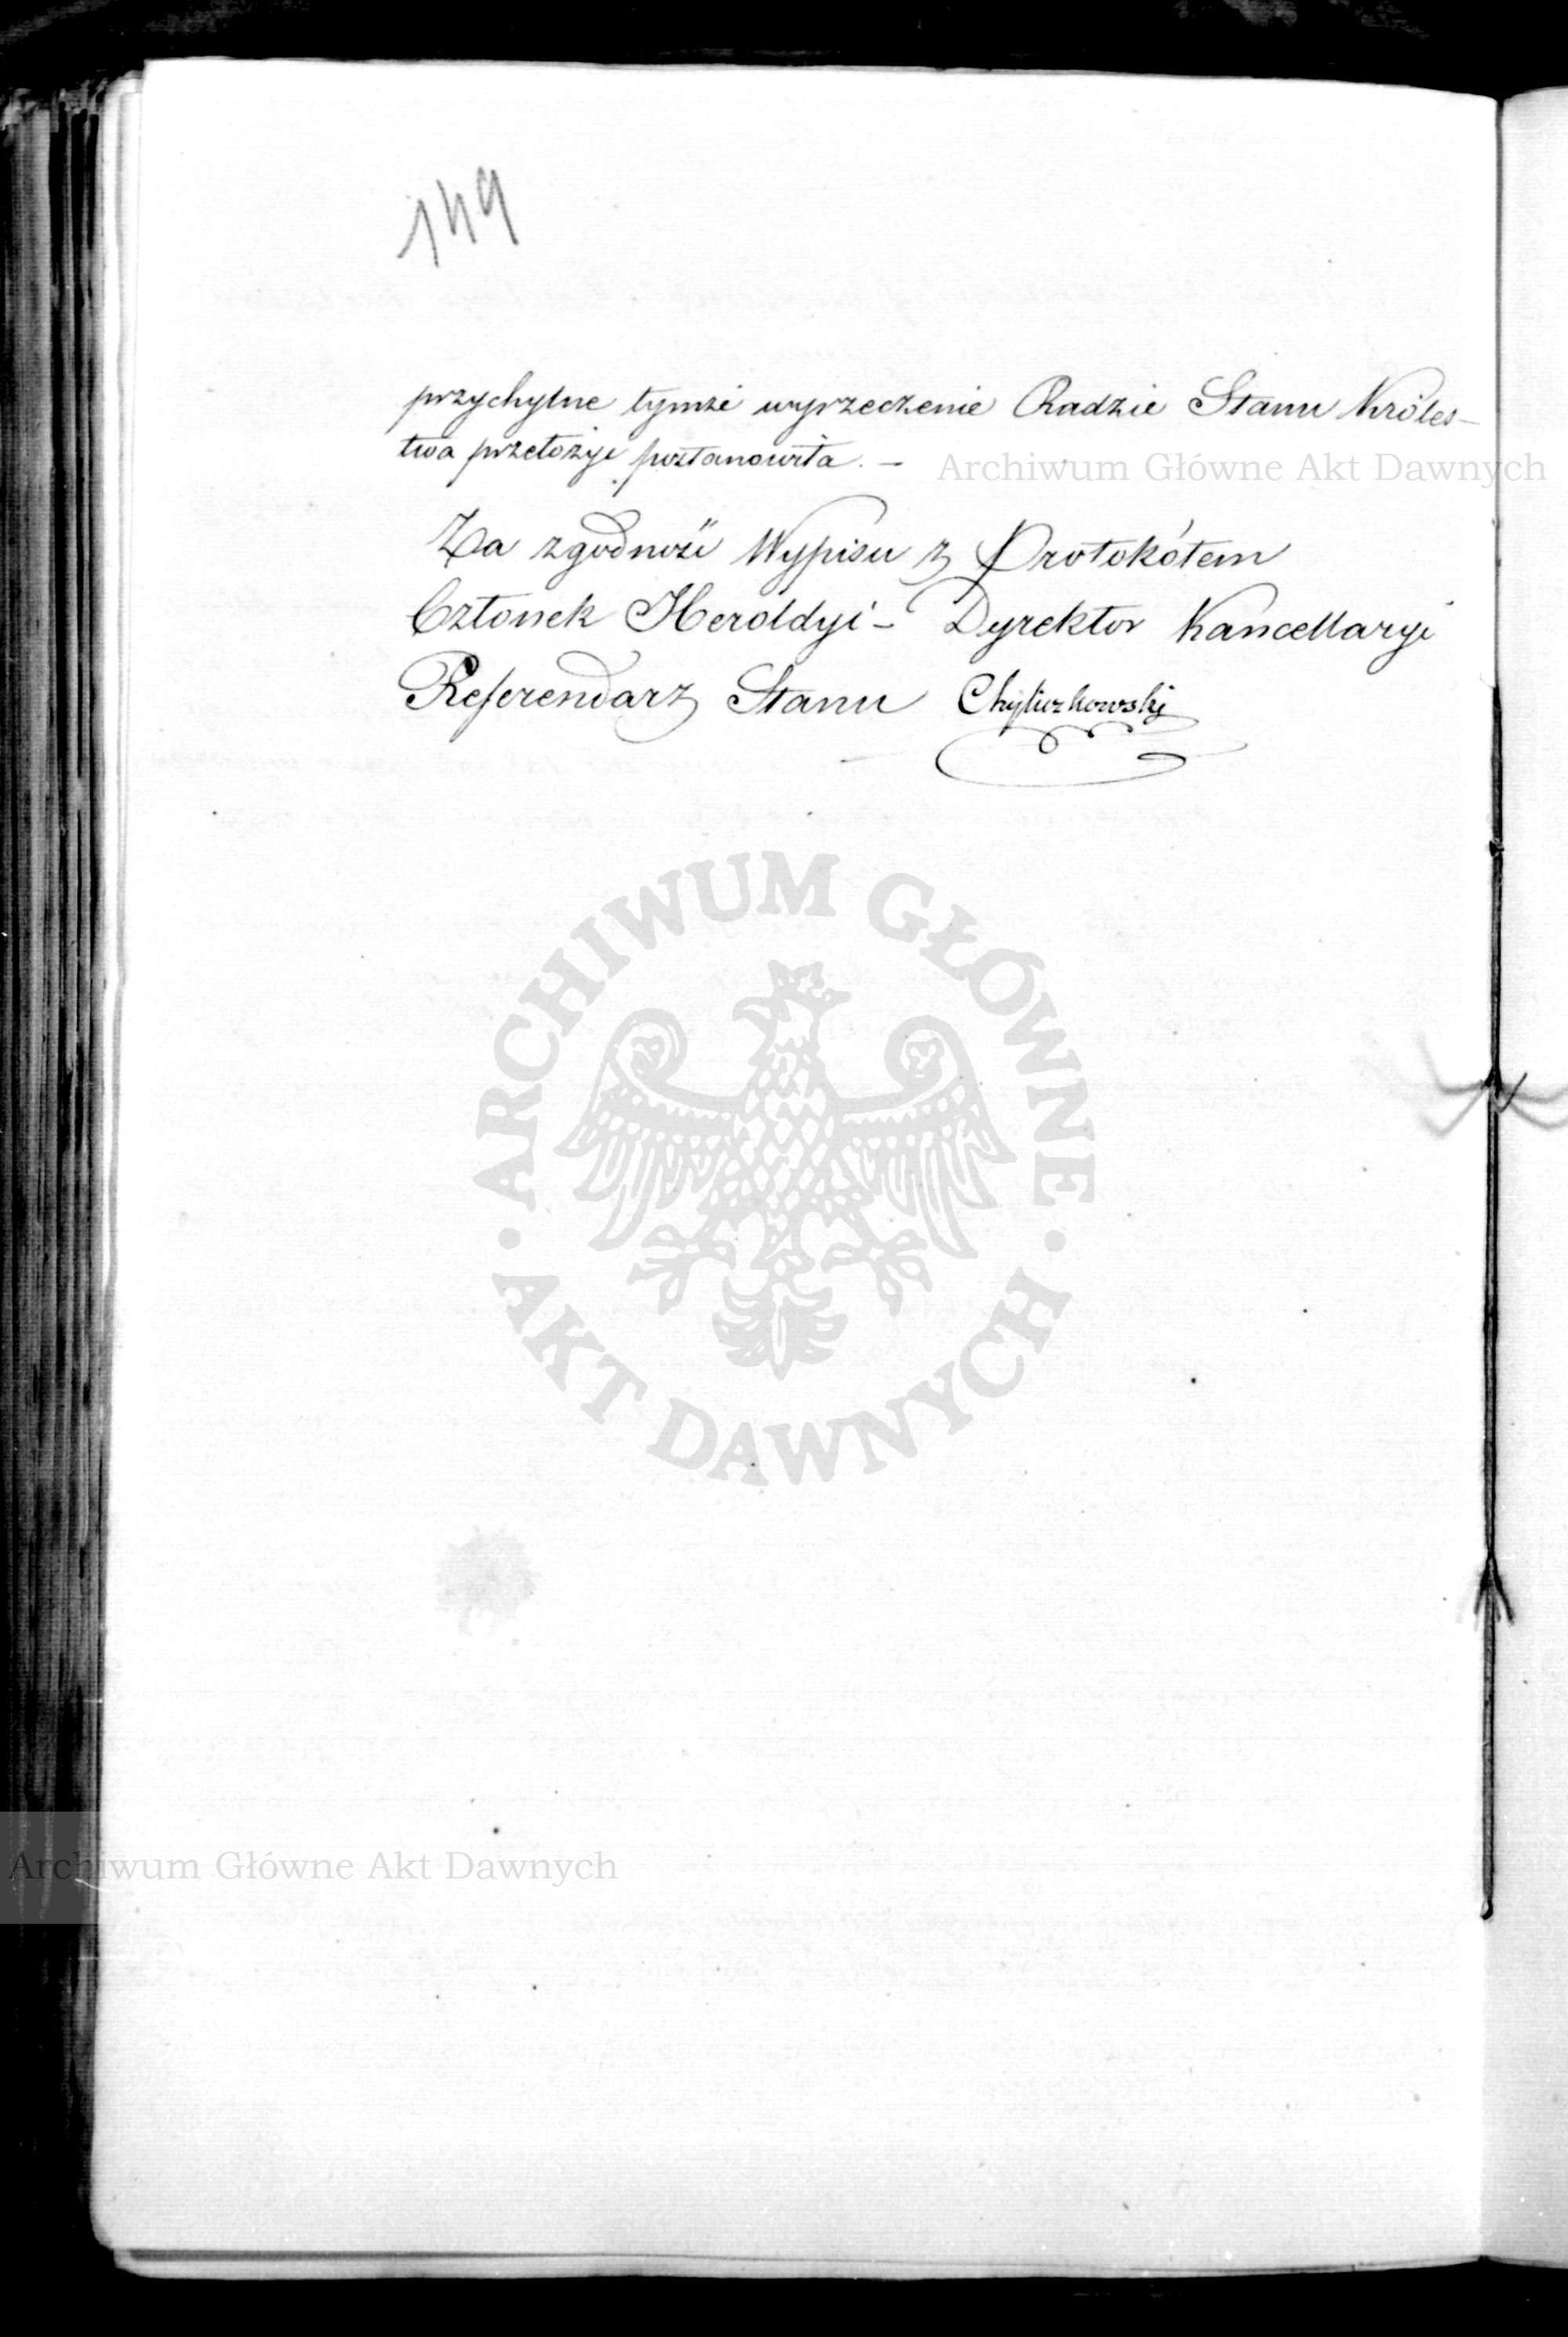 149
przychylne tymże wyrzeczenie Radzie Stanu Króles-
twa przełoży postanowiła. —
Archiwum Główne Akt Dawnych
Za zgodność Wypisu z Protokółem
Członek Heroldyi - Dyrektor Kancellaryi
Referendarz Stanu Chyliczkowski
ARCHIWUM GŁÓWNE
AKT DAWNYCH
Archiwum Główne Akt Dawnych